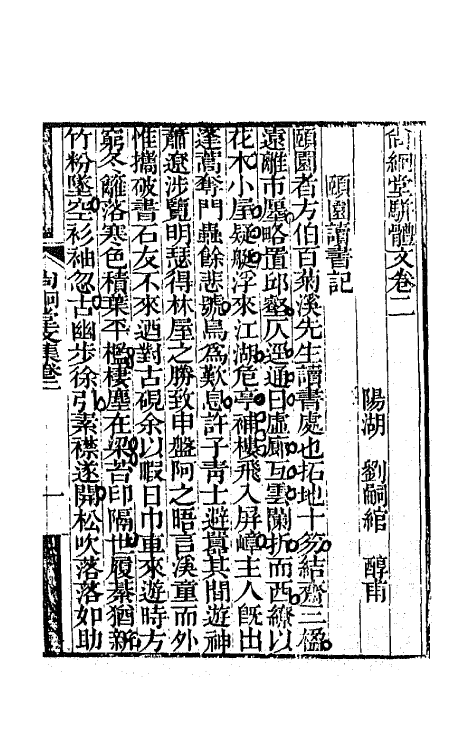 尚絅堂駢體文卷二
陽湖 劉嗣綰 醇甫
頤園讀書記
頤園者方伯百菊溪先生讀書處也拓地十笏結齋三楹
遠離市塵略置邱壑仄逕通曰虛廊互雲闌折而西繚以
花木小屋疑艇浮來江湖危亭補樓飛入屏嶂主人旣出
蓬蒿奪門蟲餘悲號鳥爲歎息許子青士避囂其間遊神
肅遼涉覽明瑟得林屋之勝致申盤阿之晤言溪童而外
惟攜破書石友不來迺對古硯余以暇日巾車來遊時方
窮冬籬落寒色積葉平檻棲塵在梁苔印隔世屐綦猶新
竹粉墜空衫袖忽古幽步徐引素襟遂開松吹落落如助
尚絅堂文集卷二 一